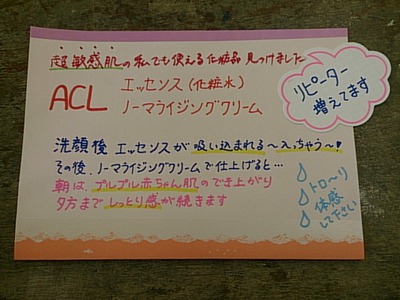 超敏感肌の私でも使える化粧品見つけました
リピーター
増えてます
ACL
エッセンス(化粧水)
ノーマライジングクリーム
洗顔後 エッセンスが 吸い込まれる〜入っちゃう〜♥
その後、ノーマライジングクリームで仕上げると…
朝は、プルプル赤ちゃん肌のでき上がり
夕方までしっとり感が続きます
トロ〜リ
体感
して下さい